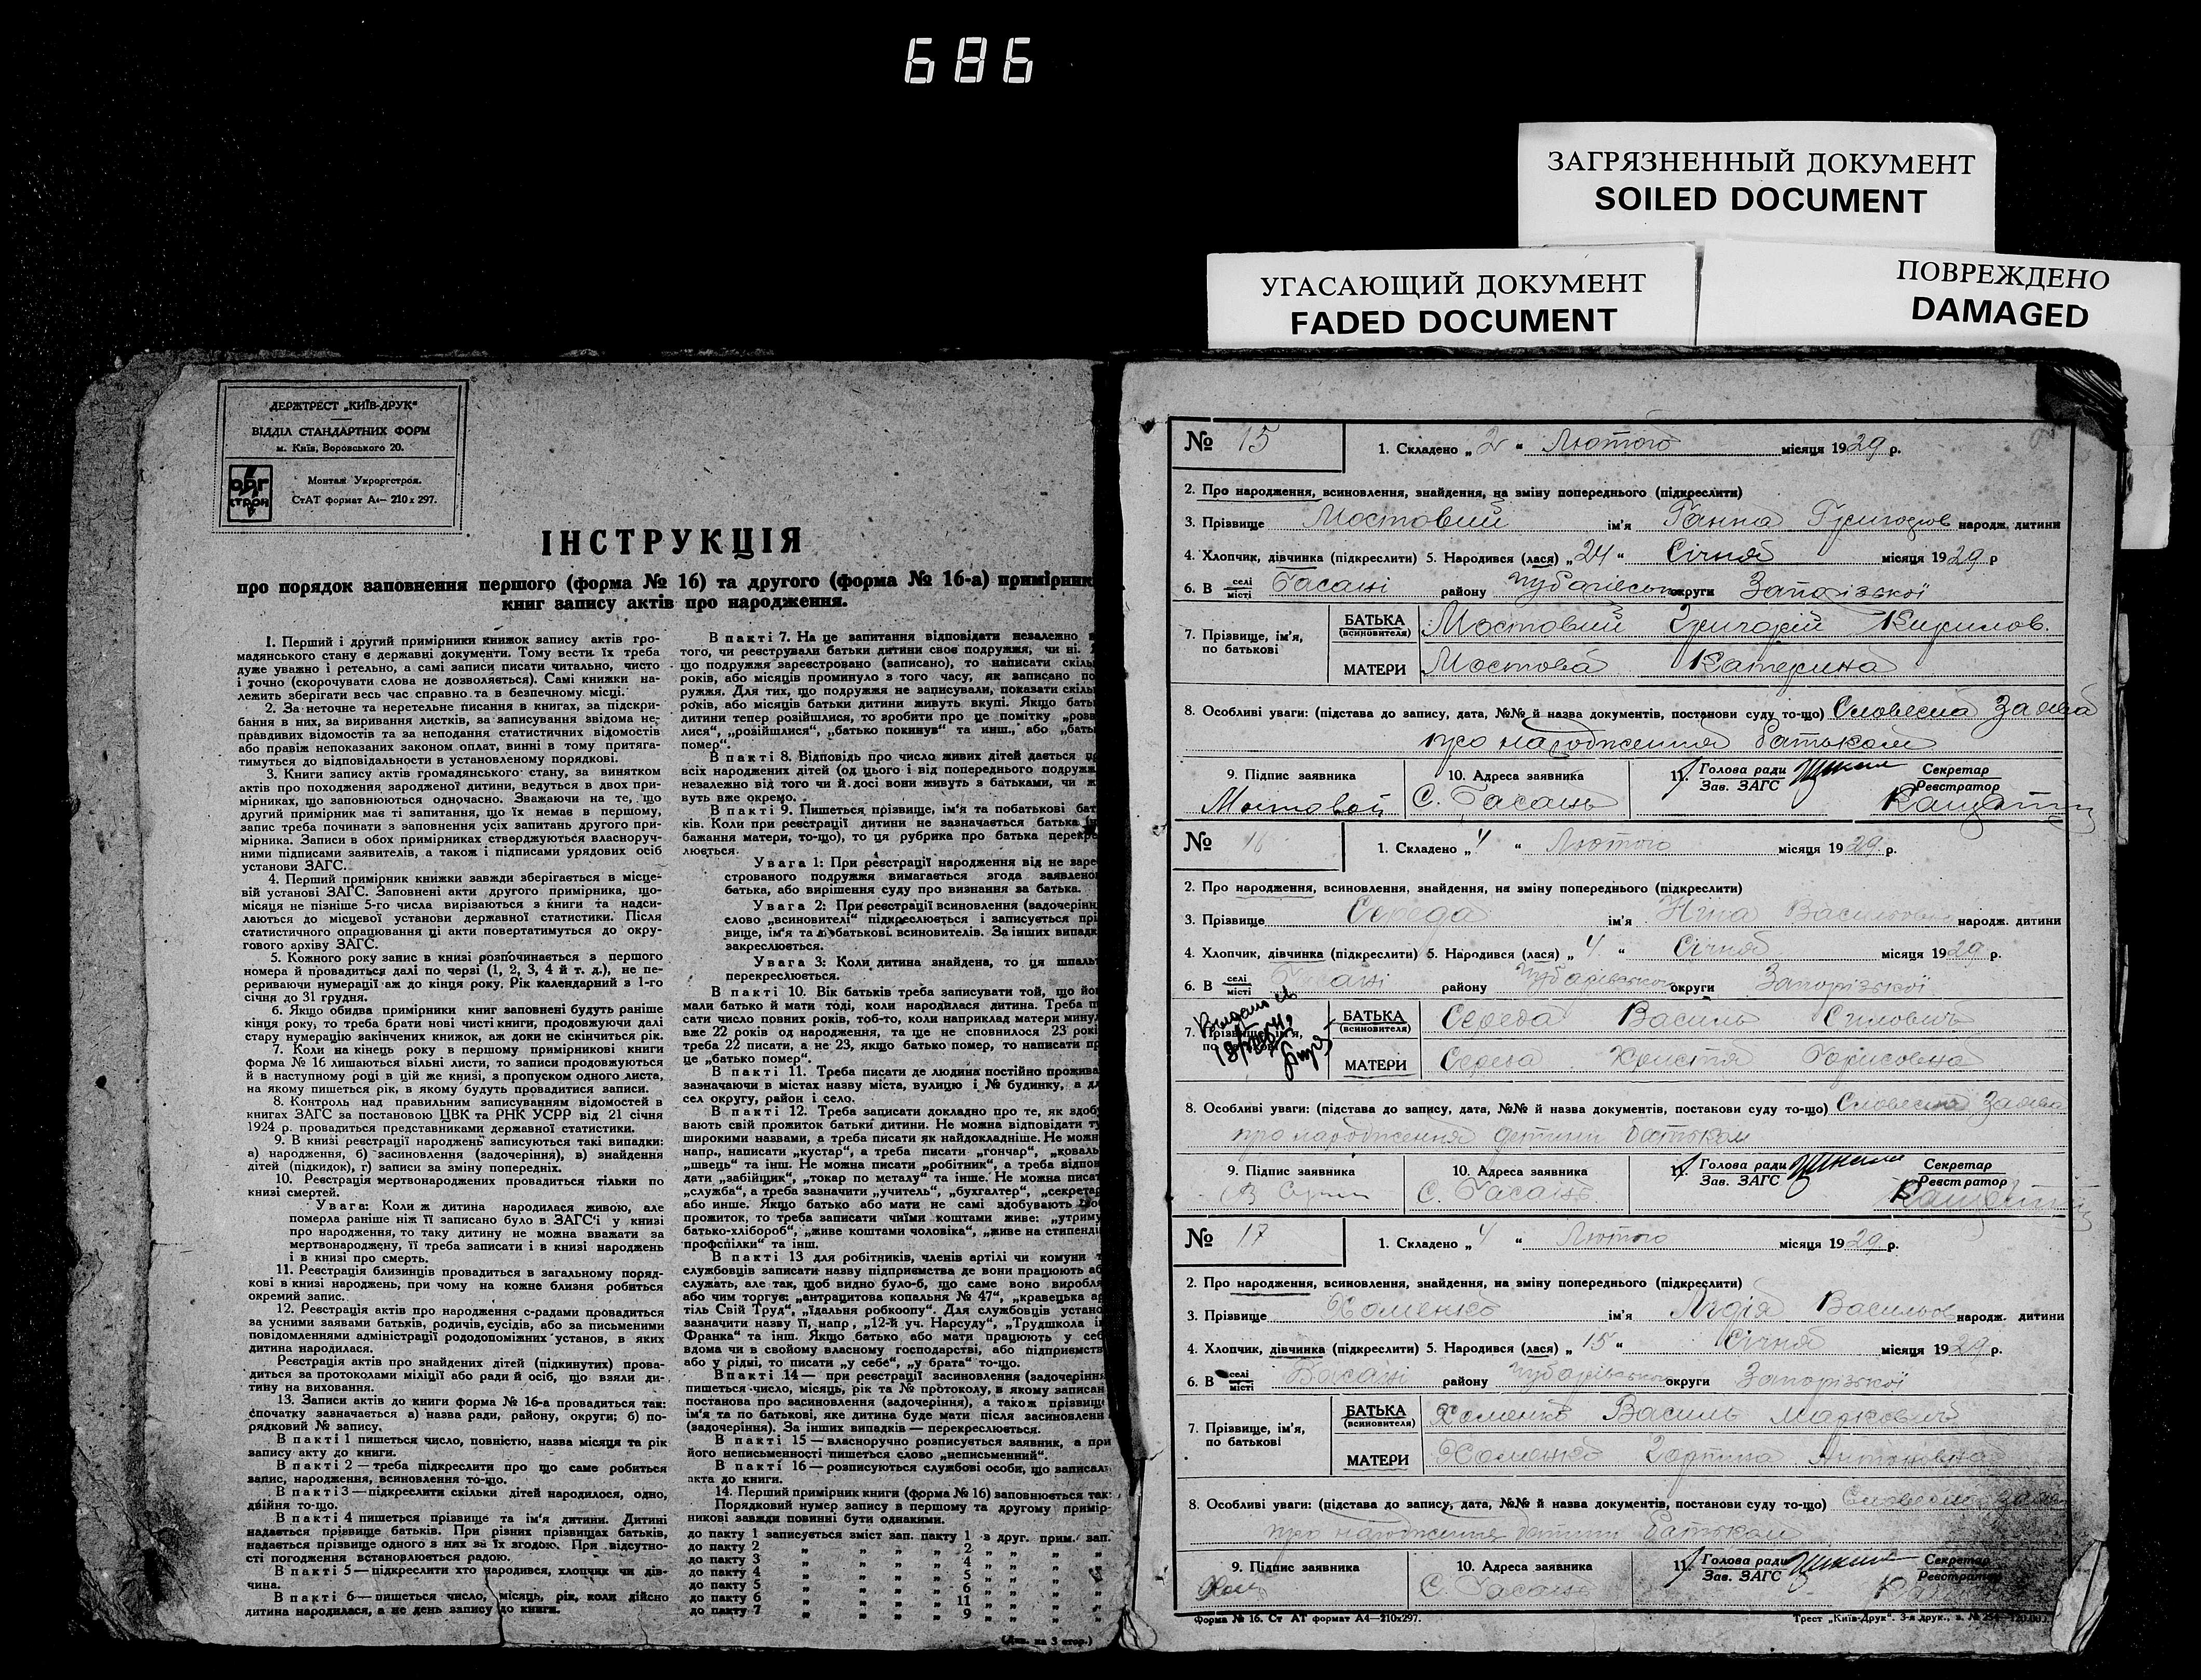 686
ЗАГРЯЗНЕННЫЙ ДОКУМЕНТ
SOILED DOCUMENT
УГАСАЮЩИЙ ДОКУМЕНТ
FADED DOCUMENT
ПОВРЕЖДЕНО
DAMAGED
ДЕРЖТРЕСТ „КИЇВ-ДРУК“
ВІДДІЛ СТАНДАРТНИХ ФОРМ
м. Київ, Воровського 20.
Монтаж Укроргстроя.
СтАТ формат А4— 210 x 297.
ІНСТРУКЦІЯ
про порядок заповнення першого (форма № 16) та другого (форма № 16-а) примірник
книг запису актів про народження.
1. Перший і другий примірники книжок запису актів гро-
мадянського стану є державні документи. Тому вести їх треба
дуже уважно і ретельно, а самі записи писати читально, чисто
і точно (скорочувати слова не дозволяється). Самі книжки на-
лежить зберігати весь час справно та в безпечному місці.
2. За неточне та неретельне писання в книгах, за підскри-
бання в них, за виривання листків, за записування звідома не-
правдивих відомостів та за неподання статистичних відомостів
або правіж непоказаних законом оплат, винні в тому притяга-
тимуться до відповідальности в установленому порядкові.
3. Книги запису актів громадянського стану, за винятком
актів про походження зародженої дитини, ведуться в двох при-
мірниках, що заповнюються одночасно. Зважаючи на те, що
другий примірник має ті запитання, що їх немає в першому,
запис треба починати з заповнення усіх запитань другого при-
мірника. Записи в обох примірниках стверджуються власноруч-
ними підписами заявителів, а також і підписами урядових осіб
установи ЗАГС.
4. Перший примірник книжки завжди зберігається в місце-
вій установі ЗАГС. Заповнені акти другого примірника, що-
місяця не пізніше 5-го числа вирізаються з книги та надси-
лаються до місцевої установи державної статистики. Після
статистичного опрацювання ці акти повертатимуться до окру-
гового архіву ЗАГС.
5. Кожного року запис в книзі розпочинається з першого
номера й провадиться далі по черзі (1, 2, 3, 4 й т. д.), не пе-
рериваючи нумерації аж до кінця року. Рік календарний з 1-го
січня до 31 грудня.
6. Якщо обидва примірники книг заповнені будуть раніше
кінця року, то треба брати нові чисті книги, продовжуючи далі
стару нумерацію закінчених книжок, аж доки не скінчиться рік.
7. Коли на кінець року в першому примірникові книги
форма № 16 лишаються вільні листи, то записи продовжуються
й в наступному році в цій же книзі, з пропуском одного листа,
на якому пишеться рік, в якому будуть провадитися записи.
8. Контроль над правильним записуванням відомостей в
книгах ЗАГС за постановою ЦВК та РНК УСРР від 21 січня
1924 р. провадиться представниками державної статистики.
9. В книзі реєстрації народжень записуються такі випадки:
а) народження, б) засиновлення (задочеріння), в) знайдення
дітей (підкидок), г) записи за зміну попередніх.
10. Реєстрація мертвонароджених провадиться тільки по
книзі смертей.
Увага: Коли ж дитина народилася живою, але
померла раніше ніж її записано було в ЗАГС'і у книзі
про народження, то таку дитину не можна вважати за
мертвонароджену, її треба записати і в книзі народжень
і в книзі про смерть.
11. Реєстрація близниців провадиться в загальному поряд-
кові в книзі народжень, при чому на кожне близня робиться
окремий запис.
12. Реєстрація актів про народження с-радами провадиться
за усними заявами батьків, родичів, сусідів, або за письменими
повідомленнями адміністрації рододопоміжних установ, в яких
дитина народилася.
Реєстрація актів про знайдених дітей (підкинутих) прова-
диться за протоколами міліції або ради й осіб, що взяли ди-
тину на виховання.
13. Записи актів до книги форма № 16-а провадиться так:
спочатку зазначається а) назва ради, району, округи; б) по-
рядковий № запису.
В пакті 1 пишеться число, повністю, назва місяця та рік
запису акту до книги.
В пакті 2 — треба підкреслити про що саме робиться
запис, народження, всиновлення то-що.
В пакті 3 — підкреслити скільки дітей народилося, одно,
двійня то-що.
В пакті 4 пишеться прізвище та ім'я дитини. Дитині
надається прізвище батьків. При різних прізвищах батьків,
надається прізвище одного з них за їх згодою. При відсутно-
сті погодження встановлюється радою.
В пакті 5 — підкреслити хто народився, хлопчик чи дів-
чина.
В пакті 6 — пишеться число, місяць, рік, коли дійсно
дитина народилася, а не день запису до книги.
В пакті 7. На це запитання відповідати незалежно в
того, чи реєстрували батьки дитини своє подружжя, чи ні.
що подружжя зареєстровано (записано), то написати скіль
років, або місяців проминуло з того часу, як записано по
ружжя. Для тих, що подружжя не записували, показати скіль
років, або місяців батьки дитини живуть вкупі. Якщо бать
дитини тепер розійшлися, то зробити про це помітку „розв
лися“, „розійшлися“, „батько покинув“ та инш., або „бать
помер“.
В пакті 8. Відповідь про число живих дітей дається п
всіх народжених дітей (од цього і від попереднього подруж
незалежно від того чи й досі вони живуть з батьками, чи ж
вуть вже окремо.
В пакті 9. Пишеться прізвище, ім'я та побатькові бат
ків. Коли при реєстрації дитини не зазначається батька
бажання матери, то-що), то ця рубрика про батька перекре
люється.
Увага 1: При реєстрації народження від не заре
строваного подружжя вимагається згода заявлено
батька, або вирішення суду про визнання за батька.
Увага 2: При реєстрації всиновлення (задочерінн
слово „всиновителі“ підкреслюється і записується прі
вище, ім'я та побатькові всиновителів. За інших випадк
закреслюється.
Увага 3: Коли дитина знайдена, то ця шпаль
перекреслюється.
В пакті 10. Вік батьків треба записувати той, що йо
мали батько й мати тоді, коли народилася дитина. Треба п
сати число повних років, тоб-то, коли наприклад матери минул
вже 22 років од народження, та ще не сповнилося 23 рокі
треба 22 писати, а не 23, якщо батько помер, то написати пр
це „батько помер“.
В пакті 11. Треба писати де людина постійно прожива
зазначаючи в містах назву міста, вулицю і № будинку, а дл
сел округу, район і село.
В пакті 12. Треба записати докладно про те, як здоб
вають свій прожиток батьки дитини. Не можна відповідати ту
широкими назвами, а треба писати як найдокладніше. Не можн
напр., написати „кустар“, а треба писати „гончар“, „коваль
„швець“ та інш. Не можна писати „робітник“, а треба відпов
дати „забійщик“, „токар по металу“ та інше. Не можна писат
„служба“, а треба зазначити „учитель“, „бухгалтер“, „секретар
або инше. Якщо батько або мати не самі здобувають
прожиток, то треба записати чиїми коштами живе: „утриму
батько-хлібороб“, „живе коштами чоловіка“, „живе на стипенді
профспілки“ та інш.
В пакті 13 для робітників, членів артілі чи комуни т
службовців записати назву підприємства де вони працюють аб
служать, але так, щоб видно було-б, що саме воно виробля
або чим торгує: „антрацитова копальня № 47“, „кравецька ар
тіль Свій Труд“, „їдальня робкоопу“. Для службовців устано
зазначити назву її, напр, „12-й уч. Нарсуду“, „Трудшкола ім
Франка“ та інш. Якщо батько або мати працюють у себ
вдома чи в своїому власному господарстві, або підприємств
або у рідні, то писати „у себе“, „у брата“ то-що.
В пакті 14 — при реєстрації засиновлення (задочеріння
пишеться число, місяць, рік та № протоколу, в якому записан
постанова про засиновлення (задочеріння), а також прізвище
ім'я та по батькові, яке дитина буде мати після засиновленн
(задочеріння). За інших випадків — перекреслюється.
В пакті 15 — власноручно розписується заявник, а при
його неписьменності пишеться слово „неписьменний“.
В пакті 16 — розписуються службові особи, що записали
акта до книги.
14. Перший примірник книги (форма № 16) заповнюється так:
Порядковий нумер запису в першому та другому примір-
никові завжди повинні бути однакови.
до пакту 1 записується зміст зап. пакту 1 з друг. прим. зап.
до пакту 2 „ „ „ „ 2 „ „ „
до пакту 3 „ „ „ „ 4 „ „ „
до пакту 4 „ „ „ „ 5 „ „ „
до пакту 5 „ „ „ „ 6 „ „ „
до пакту 6 „ „ „ „ 11 „ „ „
до пакту 7 „ „ „ „ 9 „ „ „
(Див. на 3 стор.)
№ 15 1. Складено „ 2 “ Лютого місяця 1929 р.
2. Про народження, всиновлення, знайдення, на зміну попереднього (підкреслити)
3. Прізвище Мостовий ім'я Ганна Григоров народж. дитини
4. Хлопчик, дівчинка (підкреслити) 5. Народився (лася) „ 24 “ Січня місяця 1929 р
6. В селі місті Басані району Чубарівськ округи Запорізької
7. Прізвище, ім'я, по батькові БАТЬКА (всиновителя) Мостовий Григорій Кирилов.
МАТЕРИ Мостова Катерина
8. Особливі уваги: (підстава до запису, дата, №№ й назва документів, постанови суду то-що) Словесна Заява
про народження батьком
9. Підпис заявника 10. Адреса заявника 11. Голова ради Зав. ЗАГС Секретар Реєстратор
Мостовой С. Басань
№ 16 1. Складено „ 4 “ Лютого місяця 1929 р.
2. Про народження, всиновлення, знайдення, на зміну попереднього (підкреслити)
3. Прізвище Середа ім'я Ніна Васильовн народж. дитини
4. Хлопчик, дівчинка (підкреслити) 5. Народився (лася) „ 4 “ Січня місяця 1929 р.
6. В селі місті Басані району Чубарівського округи Запорізької
7. Прізвище, ім'я, по батькові БАТЬКА (всиновителя) Середа Василь Силович
МАТЕРИ Середа Христя Борисовна
8. Особливі уваги: (підстава до запису, дата, №№ й назва документів, постанови суду то-що) Словесна Заява
про народження дитини батьком
9. Підпис заявника 10. Адреса заявника 11. Голова ради Зав. ЗАГС Секретар Реєстратор
С. Басань
№ 17 1. Складено „ 4 “ Лютого місяця 1929 р.
2. Про народження, всиновлення, знайдення, на зміну попереднього (підкреслити)
3. Прізвище Хоменко ім'я Лідія Васильов народж. дитини
4. Хлопчик, дівчинка (підкреслити) 5. Народився (лася) „ 15 “ Січня місяця 1929 р.
6. В селі місті Басані району Чубарівського округи Запорізької
7. Прізвище, ім'я, по батькові БАТЬКА (всиновителя) Хоменко Василь Маркович
МАТЕРИ Хоменко Антоновна
8. Особливі уваги: (підстава до запису, дата, №№ й назва документів, постанови суду то-що) Словесна Заява
про народження дитини батьком
9. Підпис заявника 10. Адреса заявника 11. Голова ради Зав. ЗАГС Секретар Реєстратор
С. Басань
Форма № 16. Ст АТ формат А4—210x297. Трест „Київ-Друк“. 3-я друк.